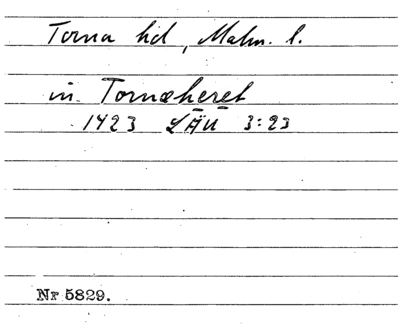 Torna hd, Malm. l.
in Tornæheret
1423 LÄU 3:23
Nr 5829.